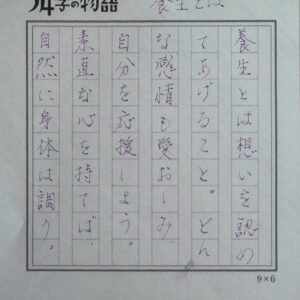 54字の物語
養生とは
養生とは想いを認め
てあげること。どん
な感情も愛おしみ、
自分を応援しよう。
素直な心を持てば、
自然に身体は調う。
9×6